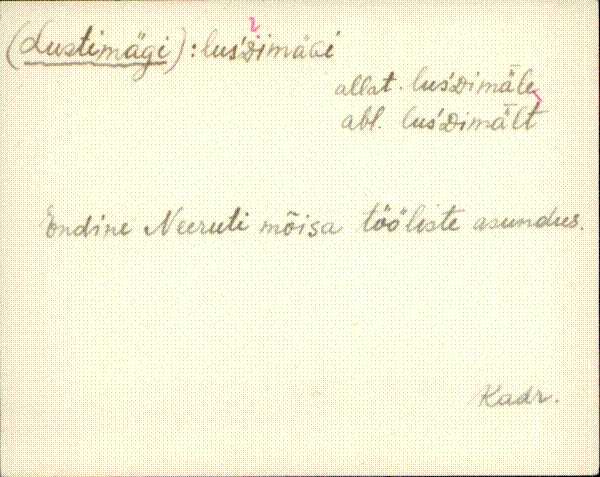 (Lustimägi): lus'DimäGi
allat. lus'Dimäle
abl. lus'Dimält
Endine Neeruti mõisa tööliste asundus.
Kadr.